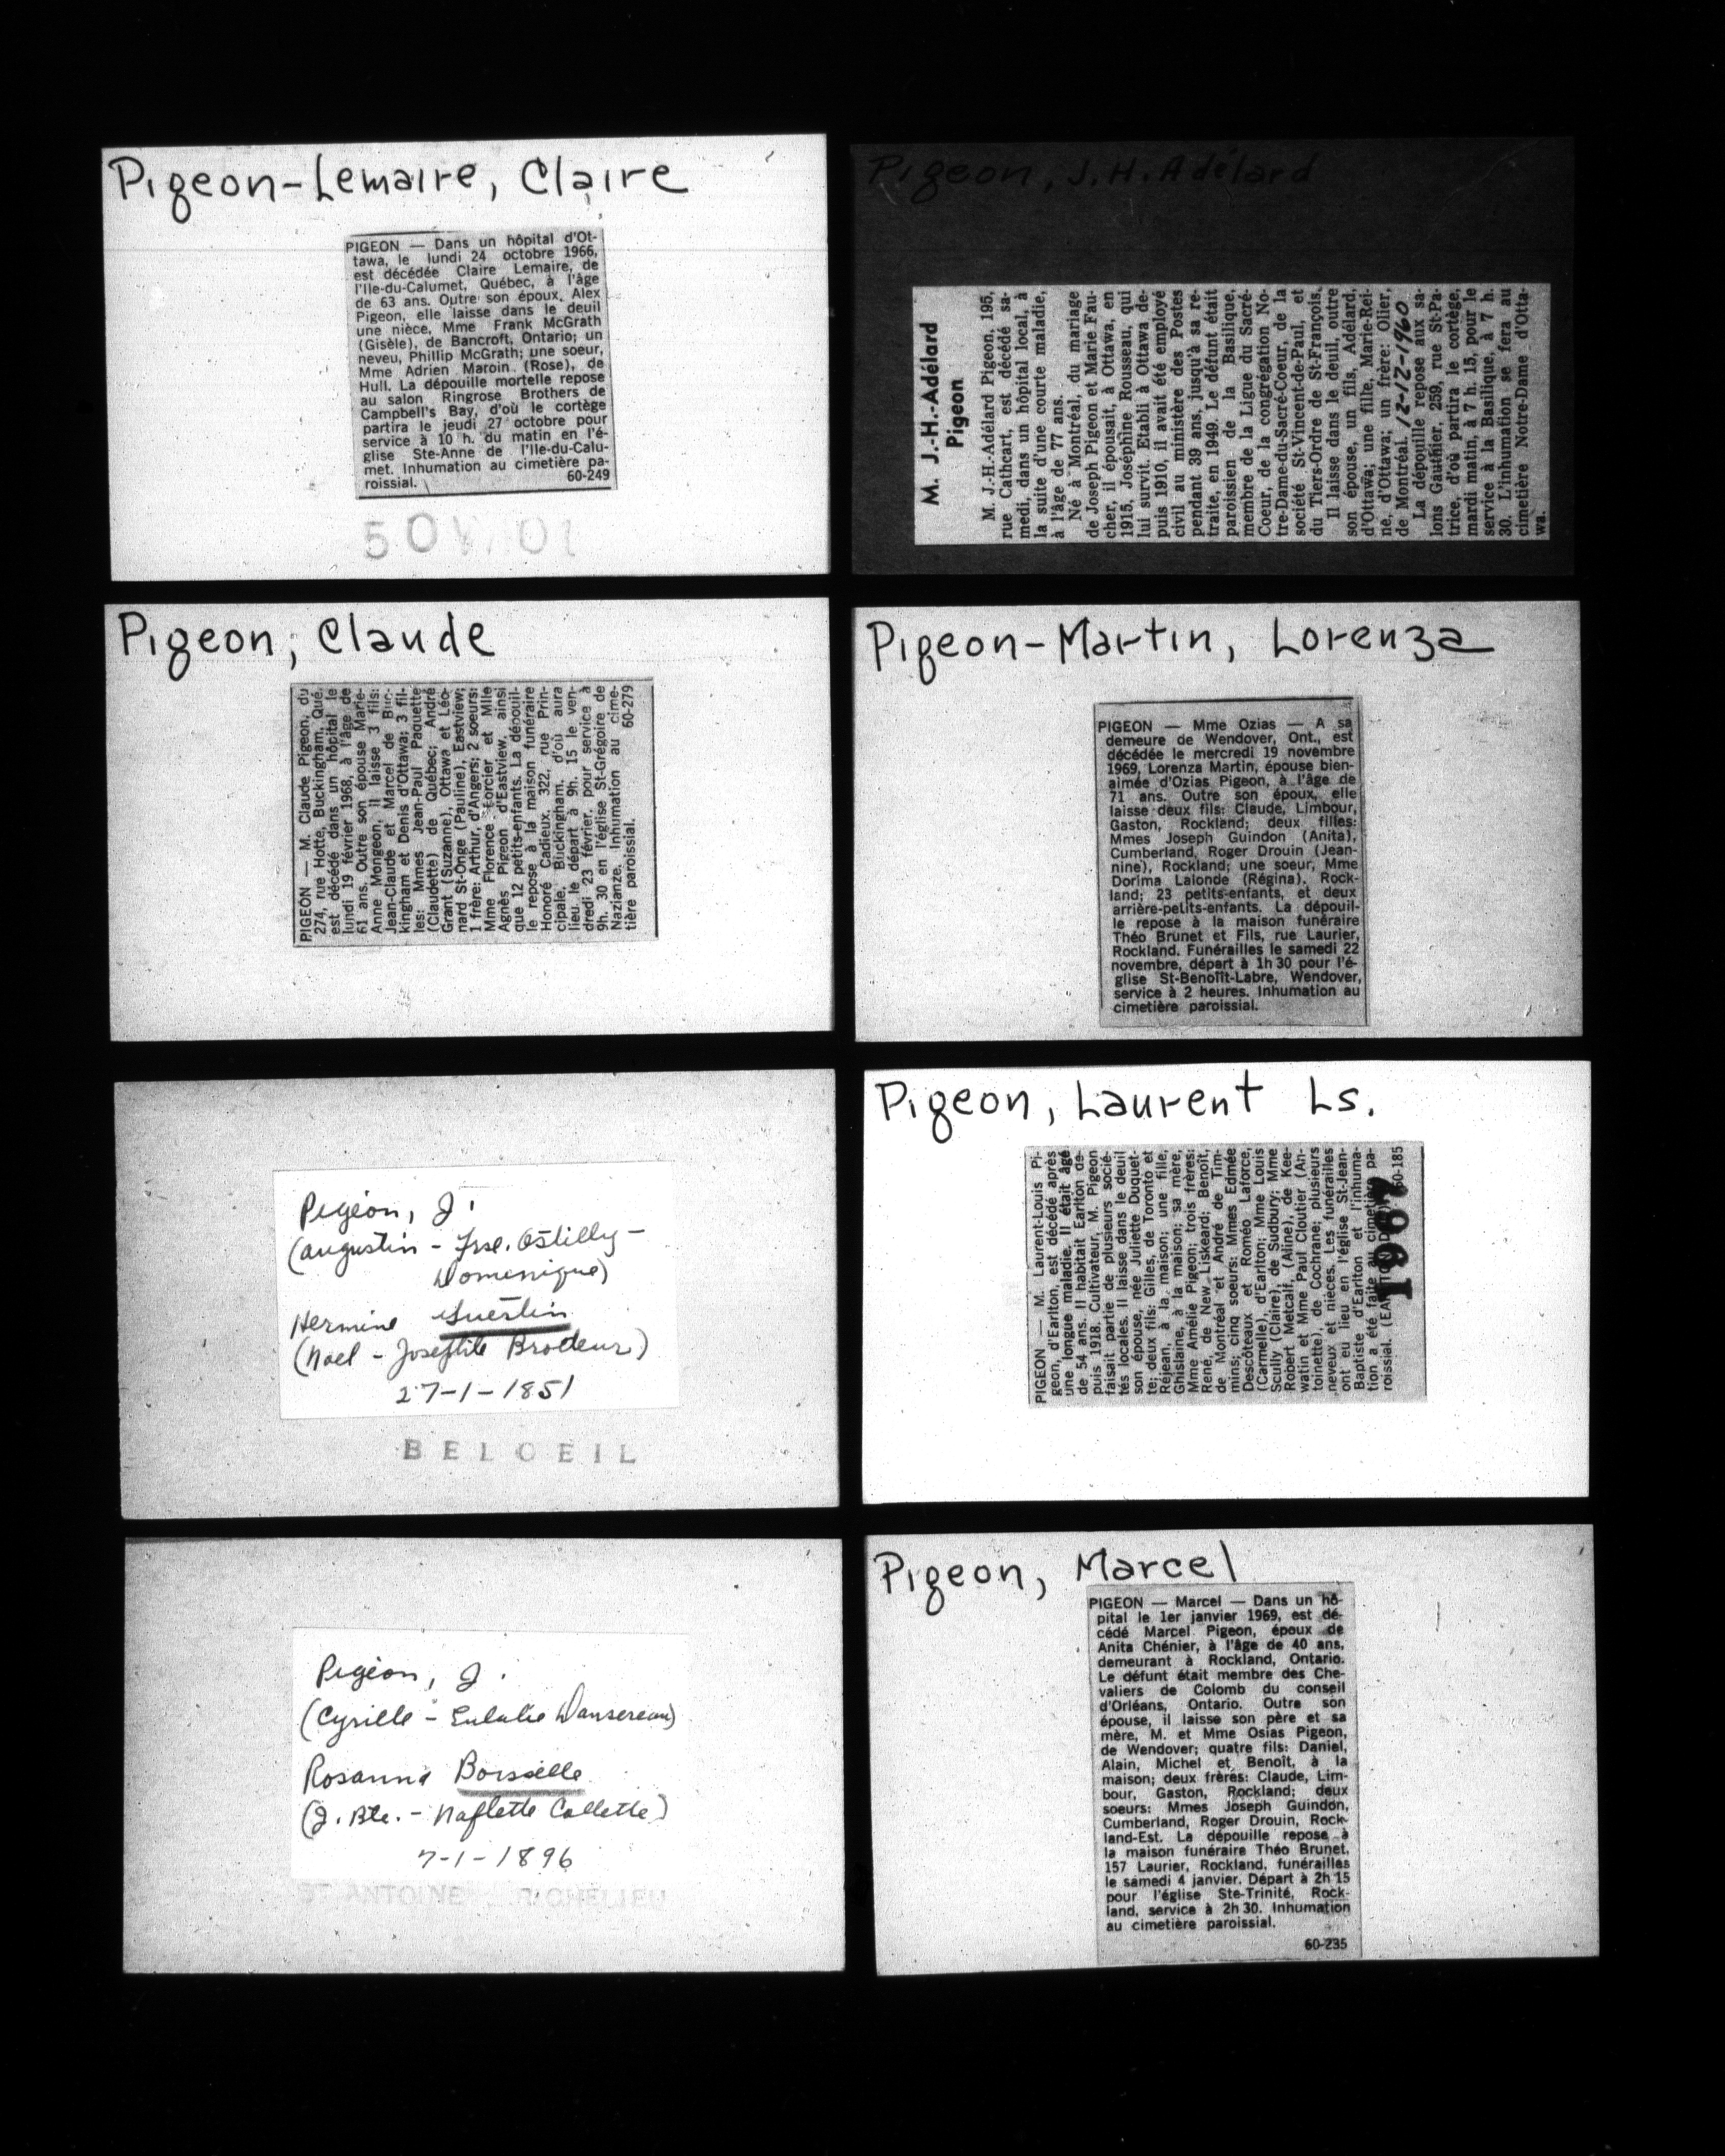 Pigeon-Lemaire, Claire
PIGEON — Dans un hôpital d'Ot-
tawa, le lundi 24 octobre 1966,
est décédée Claire Lemaire, de
l'Ile-du-Calumet, Québec, à l'âge
de 63 ans. Outre son époux, Alex
Pigeon, elle laisse dans le deuil
une nièce, Mme Frank McGrath
(Gisèle), de Bancroft, Ontario; un
neveu, Phillip McGrath; une soeur,
Mme Adrien Maroin (Rose), de
Hull. La dépouille mortelle repose
au salon Ringrose Brothers de
Campbell's Bay, d'où le cortège
partira le jeudi 27 octobre pour
service à 10 h. du matin en l'é-
glise Ste-Anne de l'Ile-du-Calu-
met. Inhumation au cimetière pa-
roissial. 60-249
Pigeon, J.H. Adélard
M. J.-H.-Adélard
Pigeon
M. J.-H.-Adélard Pigeon, 195,
rue Cathcart, est décédé sa-
medi, dans un hôpital local, à
la suite d'une courte maladie,
à l'âge de 77 ans.
Né à Montréal, du mariage
de Joseph Pigeon et Marie Fau-
cher, il épousait, à Ottawa, en
1915, Joséphine Rousseau, qui
lui survit. Etabli à Ottawa de-
puis 1910, il avait été employé
civil au ministère des Postes
pendant 39 ans, jusqu'à sa re-
traite, en 1949. Le défunt était
paroissien de la Basilique,
membre de la Ligue du Sacré-
Coeur, de la congrégation No-
tre-Dame-du-Sacré-Coeur, de la
société St-Vincent-de-Paul, et
du Tiers-Ordre de St-François.
Il laisse dans le deuil, outre
son épouse, un fils, Adélard,
d'Ottawa; une fille, Marie-Rei-
ne, d'Ottawa; un frère: Olier,
de Montréal. 12-12-1960
La dépouille repose aux sa-
lons Gauthier, 259, rue St-Pa-
trice, d'où partira le cortège,
mardi matin, à 7 h. 15, pour le
service à la Basilique, à 7 h.
30. L'inhumation se fera au
cimetière Notre-Dame d'Otta-
wa.
Pigeon, Claude
PIGEON — M. Claude Pigeon, du
274, rue Hotte, Buckingham, Qué.
est décédé dans un hôpital le
lundi 19 février 1968, à l'âge de
61 ans. Outre son épouse Marie-
Anne Mongeon, il laisse 3 fils:
Jean-Claude et Marcel de Buc-
kingham et Denis d'Ottawa; 3 fil-
les: Mmes Jean-Paul Paquette
(Claudette) de Québec; André
Grant (Suzanne), Ottawa et Léo-
nard St-Onge (Pauline), Eastview;
1 frère: Arthur, d'Angers; 2 soeurs:
Mme Florence Forcier et Mlle
Agnès Pigeon d'Eastview, ainsi
que 12 petits-enfants. La dépouil-
le repose à la maison funéraire
Honoré Cadieux, 322, rue Prin-
cipale, Buckingham, d'où aura
lieu le départ à 9h. 15 le ven-
dredi 23 février, pour service à
9h. 30 en l'église St-Grégoire de
Nazianze. Inhumation au cime-
tière paroissial. 60-279
Pigeon-Martin, Lorenza
PIGEON — Mme Ozias — A sa
demeure de Wendover, Ont., est
décédée le mercredi 19 novembre
1969, Lorenza Martin, épouse bien-
aimée d'Ozias Pigeon, à l'âge de
71 ans. Outre son époux, elle
laisse deux fils: Claude, Limbour,
Gaston, Rockland; deux filles:
Mmes Joseph Guindon (Anita),
Cumberland, Roger Drouin (Jean-
nine), Rockland; une soeur, Mme
Dorima Lalonde (Régina), Rock-
land; 23 petits-enfants, et deux
arrière-petits-enfants. La dépouil-
le repose à la maison funéraire
Théo Brunet et Fils, rue Laurier,
Rockland. Funérailles le samedi 22
novembre, départ à 1h 30 pour l'é-
glise St-Benoît-Labre, Wendover,
service à 2 heures. Inhumation au
cimetière paroissial.
Pigeon, J.
(Augustin - Frse. Ostilly -
Domenique)
Hermine Guertin
(Noel - Josephte Brodeur)
27-1-1851
BELOEIL
Pigeon, Laurent Ls.
PIGEON — M. Laurent-Louis Pi-
geon, d'Earlton, est décédé après
une longue maladie. Il était âgé
de 54 ans. Il habitait Earlton de-
puis 1918. Cultivateur, M. Pigeon
faisait partie de plusieurs socié-
tés locales. Il laisse dans le deuil
son épouse, née Juliette Duquet-
te; deux fils: Gilles, de Toronto et
Réjean, à la maison; une fille,
Ghislaine, à la maison; sa mère,
Mme Amélie Pigeon; trois frères:
René, de New Liskeard; Benoît,
de Montréal et André de Tim-
mins; cinq soeurs: Mmes Edmée
Descôteaux et Roméo Laforce,
(Carmelle), d'Earlton; Mme Louis
Scully (Claire), de Sudbury; Mme
Robert Metcalf, (Aline), de Kee-
watin et Mme Paul Cloutier (An-
toinette), de Cochrane; plusieurs
neveux et nièces. Les funérailles
ont eu lieu en l'église St-Jean-
Baptiste d'Earlton et l'inhuma-
tion a été faite au cimetière pa-
roissial. 60-185
1967
Pigeon, J.
(Cyrille - Eulalie Dansereau)
Rosanna Boisselle
(J. Bte. - Naflette Collette)
7-1-1896
ST ANTOINE RICHELIEU
Pigeon, Marcel
PIGEON — Marcel — Dans un hô-
pital le 1er janvier 1969, est dé-
cédé Marcel Pigeon, époux de
Anita Chénier, à l'âge de 40 ans,
demeurant à Rockland, Ontario.
Le défunt était membre des Che-
valiers de Colomb du conseil
d'Orléans, Ontario. Outre son
épouse, il laisse son père et sa
mère, M. et Mme Osias Pigeon,
de Wendover; quatre fils: Daniel,
Alain, Michel et Benoît, à la
maison; deux frères: Claude, Lim-
bour, Gaston, Rockland; deux
soeurs: Mmes Joseph Guindon,
Cumberland, Roger Drouin, Rock-
land-Est. La dépouille repose à
la maison funéraire Théo Brunet,
157 Laurier, Rockland, funérailles
le samedi 4 janvier. Départ à 2h 15
pour l'église Ste-Trinité, Rock-
land, service à 2h 30. Inhumation
au cimetière paroissial.
60-235